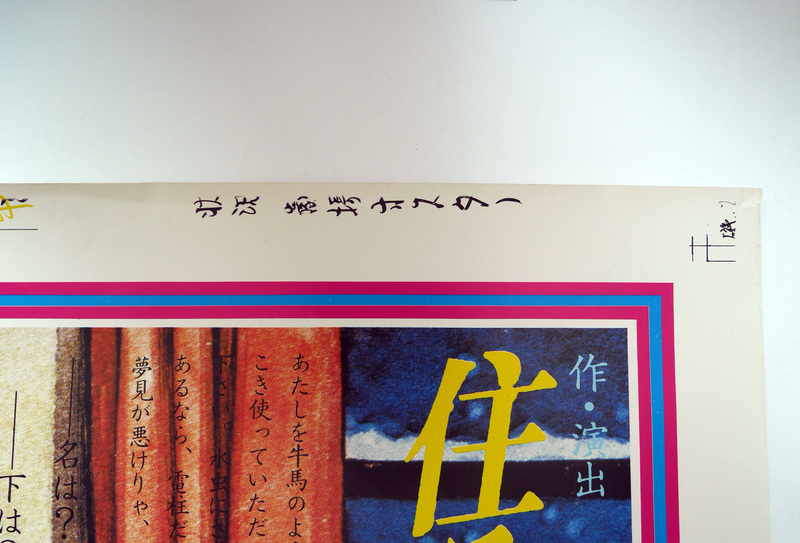 状況劇場ポスター
作・演出
住
あたしを牛馬のよ
こき使っていただ
下さい。水虫にさ
あるなら、電柱だ
夢見が悪けりゃ、
―名は?
―下は?